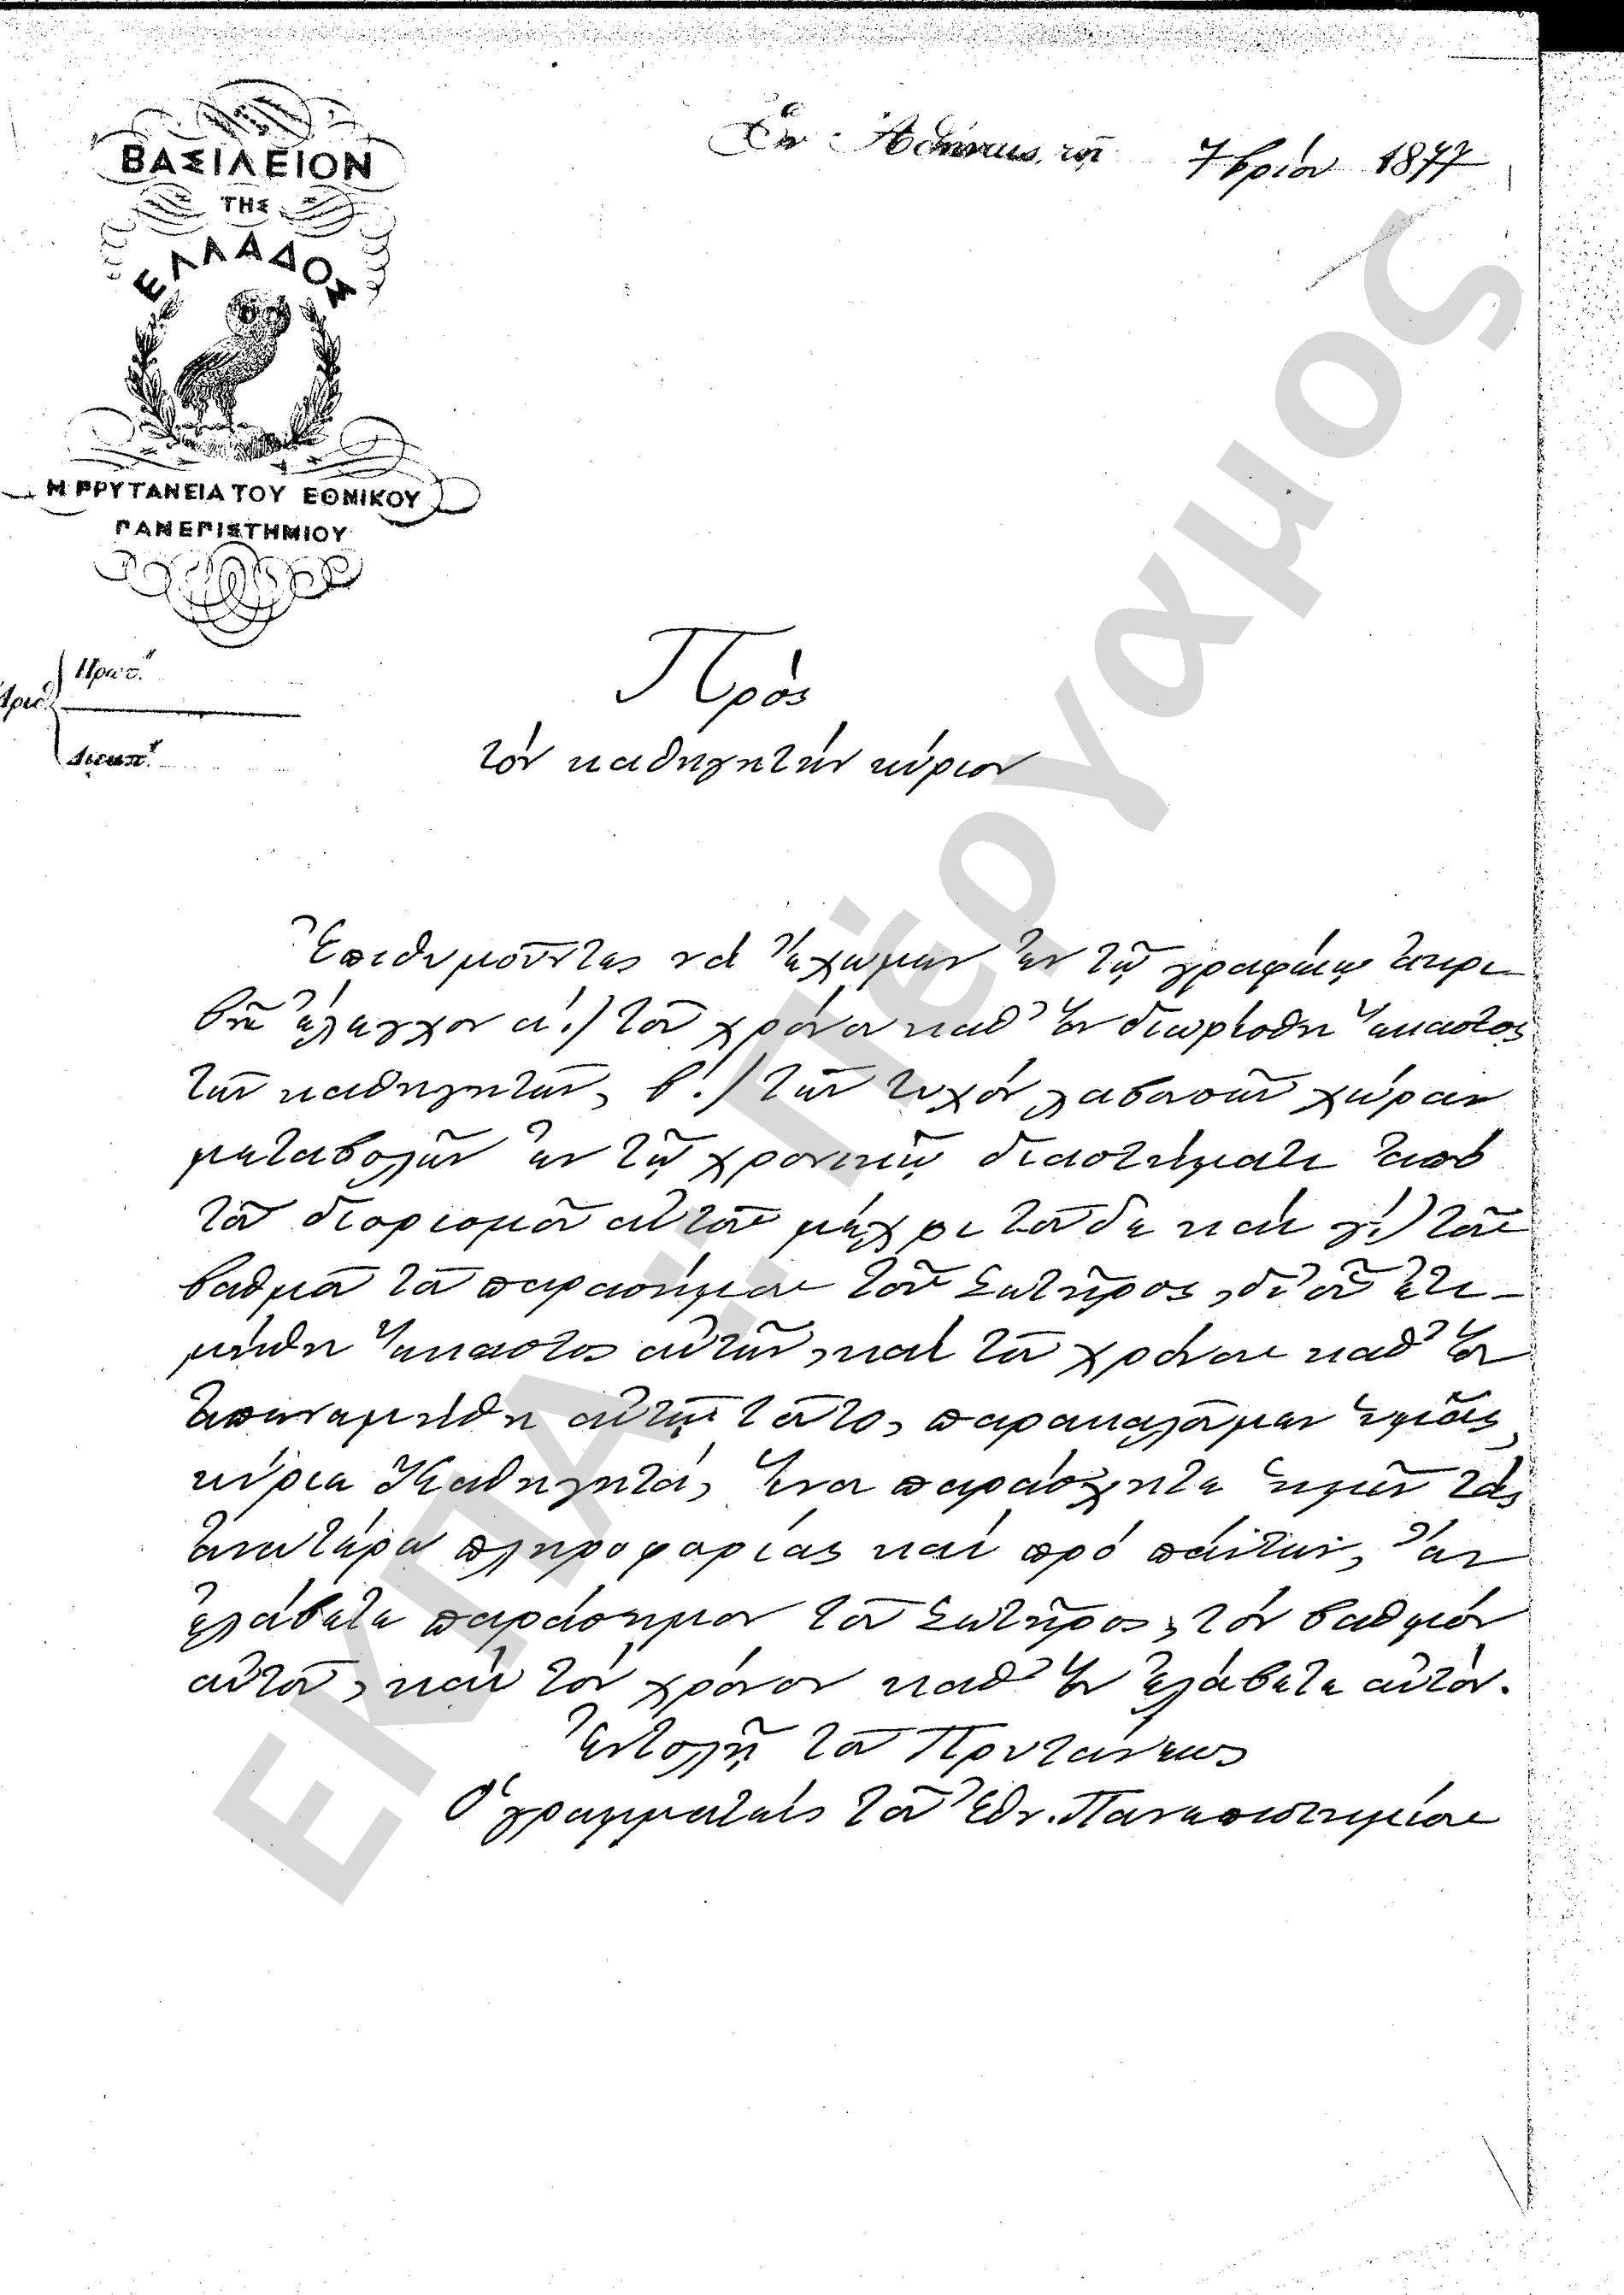 ΒΑΣΙΛΕΙΟΝ
ΤΗΣ
ΕΛΛΑΔΟΣ
Η ΠΡΥΤΑΝΕΙΑ ΤΟΥ ΕΘΝΙΚΟΥ
ΠΑΝΕΠΙΣΤΗΜΙΟΥ
Ἐν Ἀθήναις, τῇ 7βρίου 1877
Ἀριθ.
Πρωτ.
Διεκπ.
Πρὸς
τὸν καθηγητὴν κύριον
Ἐπιθυμοῦντες νὰ ἔχωμεν ἐν τῷ γραφείῳ ἀκρι-
βῆ ἔλεγχον α΄.) τοῦ χρόνου καθ' ὃν διωρίσθη ἕκαστος
τῶν καθηγητῶν, β΄.) τῶν τυχὸν λαβουσῶν χώραν
μεταβολῶν ἐν τῷ χρονικῷ διαστήματι ἀπὸ
τοῦ διορισμοῦ αὐτοῦ μέχρι τοῦδε καὶ γ΄.) τοῦ
βαθμοῦ τοῦ παρασήμου τοῦ Σωτῆρος, δι' οὗ ἐτι-
μήθη ἕκαστος αὐτῶν, καὶ τοῦ χρόνου καθ' ὃν
ἀπενεμήθη αὐτῷ τοῦτο, παρακαλοῦμεν ὑμᾶς,
κύριε Καθηγητά, ἵνα παράσχητε ἡμῖν τὰς
ἀνωτέρω πληροφορίας καὶ πρὸ πάντων, ἂν
ἐλάβετε παράσημον τοῦ Σωτῆρος, τὸν βαθμὸν
αὐτοῦ, καὶ τὸν χρόνον καθ' ὃν ἐλάβετε αὐτόν.
Ἐντολῇ τοῦ Πρυτάνεως
Ὁ γραμματεὺς τοῦ Ἐθν. Πανεπιστημίου
ΕΚΠΑ...Πέργαμος